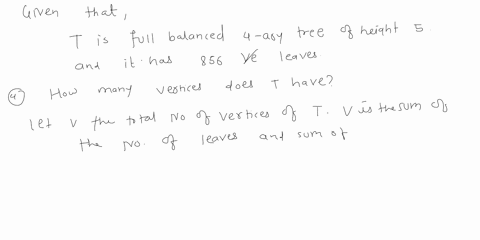 Given that,
T is full balanced 4-asy tree of height 5
and it has 856 leaves.
(4) How many vertices does T have?
Let V the total No of vertices of T. V is the sum of
the No. of leaves and sum of